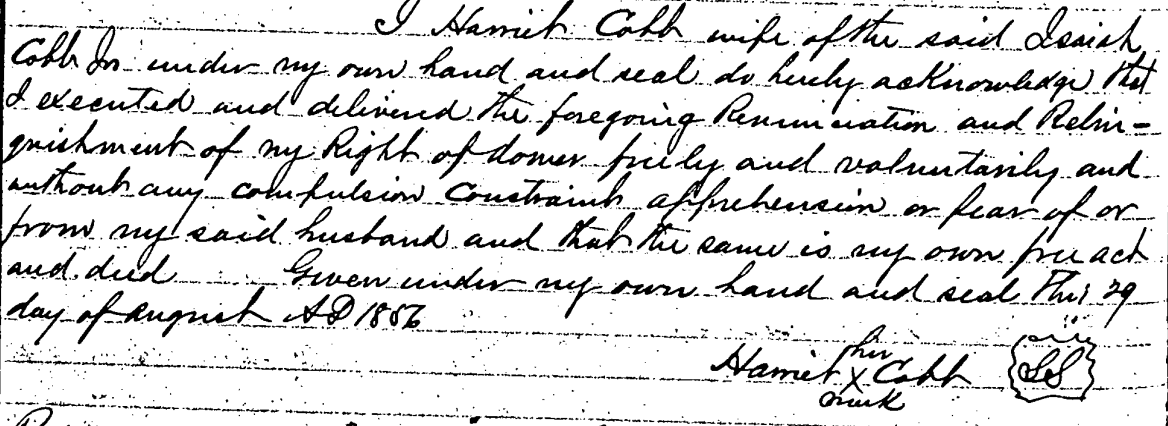 I Harriet Cobb wife of the said Isaiah
Cobb Jr under my own hand and seal do hereby acknowledge that
I executed and delivered the foregoing Renunciation and Relin=
quishment of my Right of dower freely and voluntarily and
without any compulsion Constraint apprehension or fear of or
from my said husband and that the same is my own free act
and deed Given under my own hand and seal this 29
day of August AD 1856
her
Harriet X Cobb LS
mark